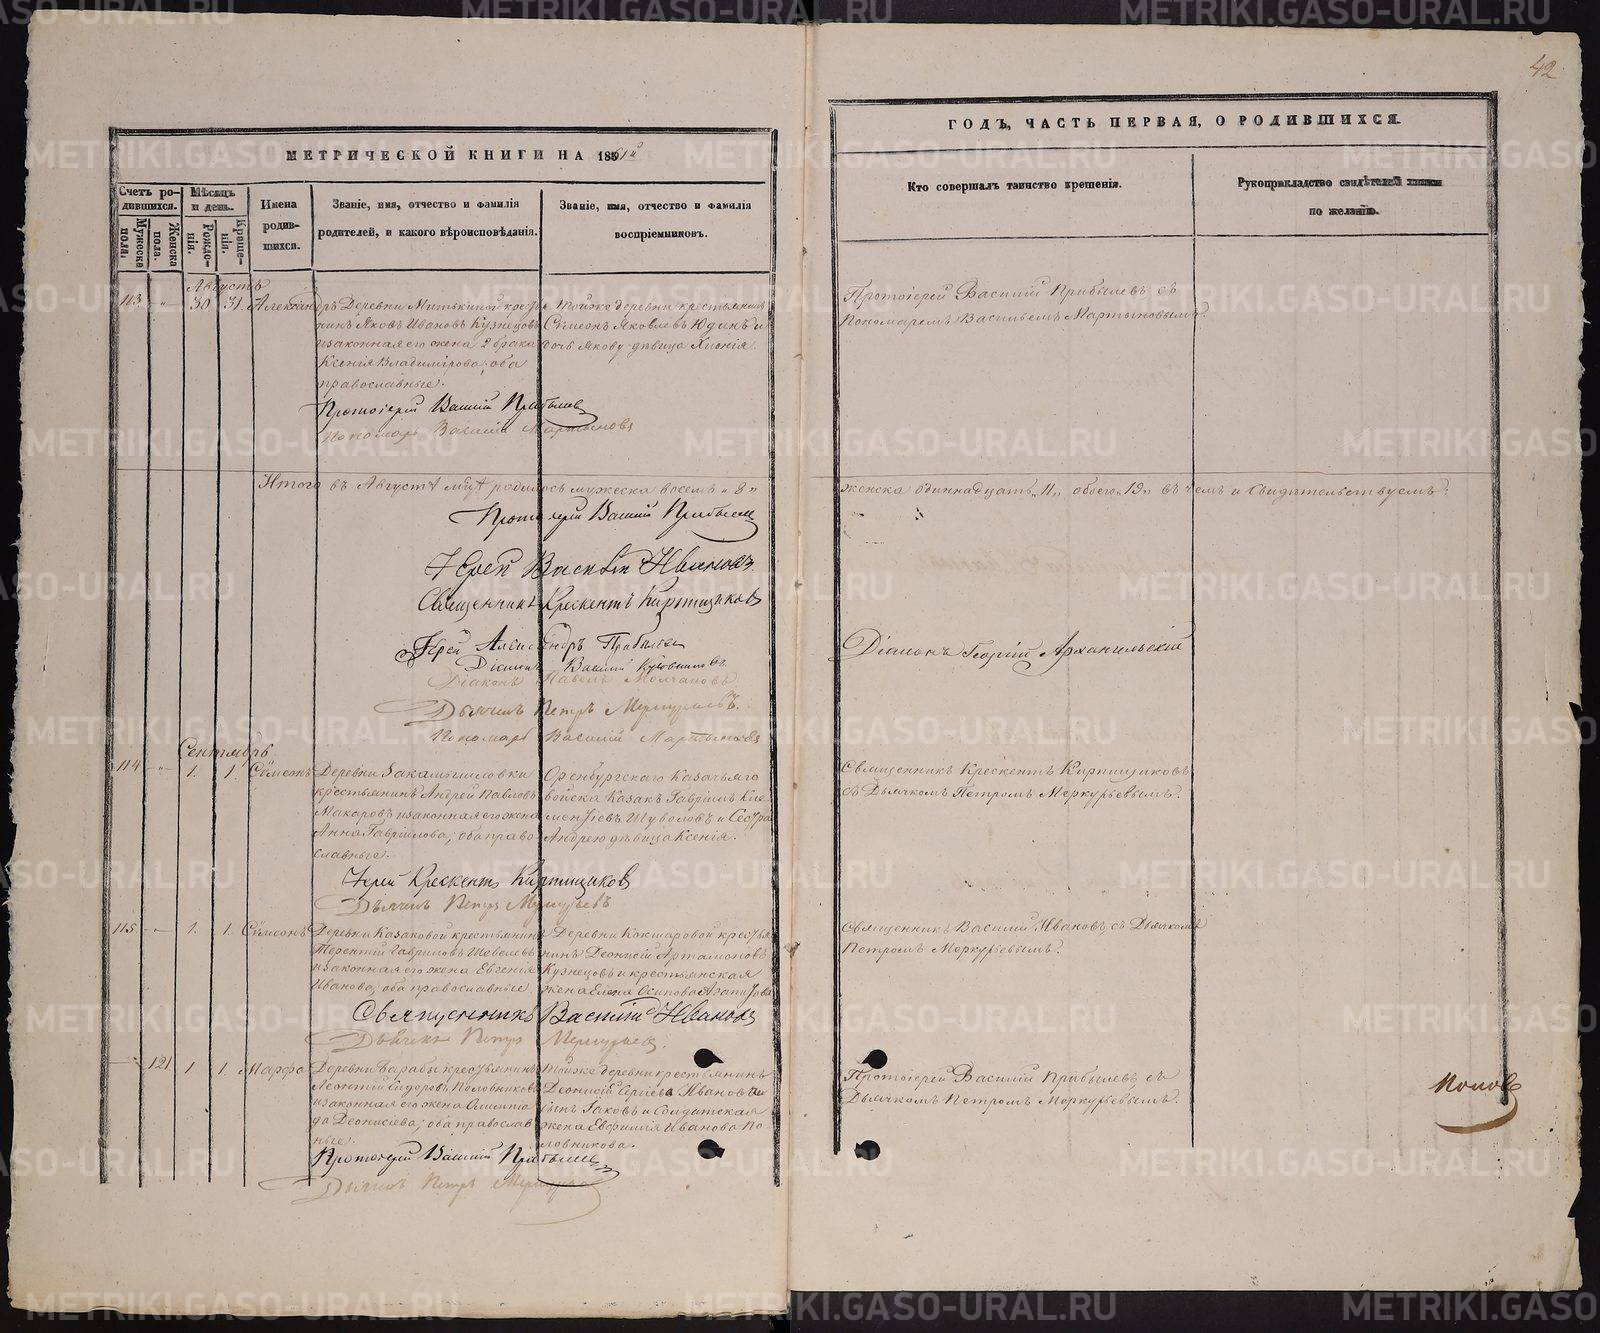 42
МЕТРИЧЕСКОЙ КНИГИ НА 1861й
ГОДЪ, ЧАСТЬ ПЕРВАЯ, О РОДИВШИХСЯ.
Счетъ родившихся.
Мужеска пола.
Женска пола.
Мѣсяцъ и день.
Рожденія.
Крещенія.
Имена родившихся.
Званіе, имя, отчество и фамилія родителей, и какого вѣроисповѣданія.
Званіе, имя, отчество и фамилія воспріемниковъ.
Кто совершалъ таинство крещенія.
Рукоприкладство свидѣтелей записи по желанію.
Августъ
113 „ 30. 31. Александръ
Деревни Митькиной крестья
нинъ Яковъ Ивановъ Кузнецовъ
и законная его жена 2 брака
Ксенія Владимірова; оба
православные.
Тойже деревни крестьянинъ
Сѵмеонъ Яковлевъ Юдинъ и
дочь Якову дѣвица Хіонія.
Протоіерей Василій Прибылевъ съ
Пономаремъ Васильемъ Мартыновымъ.
Протоіерей Василій Прибылевъ
Пономарь Василій Мартыновъ
Итого въ Августѣ м҃цѣ родилось мужеска восемь „8„
женска одиннадцать „11„ обоего „19„ въ чемъ и свидѣтельствуемъ:
Протоіерей Василій Прибылевъ
Іерей Василій Ивановъ
Священникъ Крескентъ Кирпищиковъ
Іерей Александръ Прибылевъ
Діаконъ Георгій Архангельскій
Діаконъ Василій
Діаконъ Павелъ Молчановъ
Дьячекъ Петръ Меркурьевъ.
Пономарь Василій Мартыновъ
Сентябрь
114 „ 1. 1. Сѵмеонъ
Деревни Закамышловки
крестьянинъ Андрей Павловъ
Макаровъ и законная его жена
Анна Гавріилова; оба право
славные.
Оренбургскаго Казачьяго
войска Казакъ Гавріилъ Кле
ментіевъ Шуваловъ и Сестра
Андрею дѣвица Ксенія.
Священникъ Крескентъ Кирпищиковъ
съ Дьячкомъ Петромъ Меркурьевымъ.
Іерей Крескентъ Кирпищиковъ
Дьячекъ Петръ Меркурьевъ
115 „ 1. 1. Сѵмеонъ
Деревни Казаковой крестьянинъ
Терентій Гавриловъ Шевелевъ
и законная его жена Евгенія
Иванова; оба православные
Деревни Кокшаровой крестья
нинъ Деонисій Артамоновъ
Кузнецовъ и крестьянская
жена Елена Осипова
Священникъ Василій Ивановъ съ Дьячкомъ
Петромъ Меркурьевымъ.
Священникъ Василій Ивановъ
Дьячекъ Петръ Меркурьевъ.
121 1 1. Марфа
Деревни Барабы крестьянинъ
Леонтій Сидоровъ Половниковъ
и законная его жена Олимпіа
да Деонисіева; оба православ
ные.
Тойже деревни крестьянинъ
Деонисій Сергіевъ Ивановъ
сынъ Іаковъ и Солдатская
жена Евфимія Иванова По
ловникова.
Протоіерей Василій Прибылевъ съ
Дьячкомъ Петромъ Меркурьевымъ.
Протоіерей Василій Прибылевъ
Дьячекъ Петръ Меркурьевъ
Поповъ
METRIKI.GASO-URAL.RU